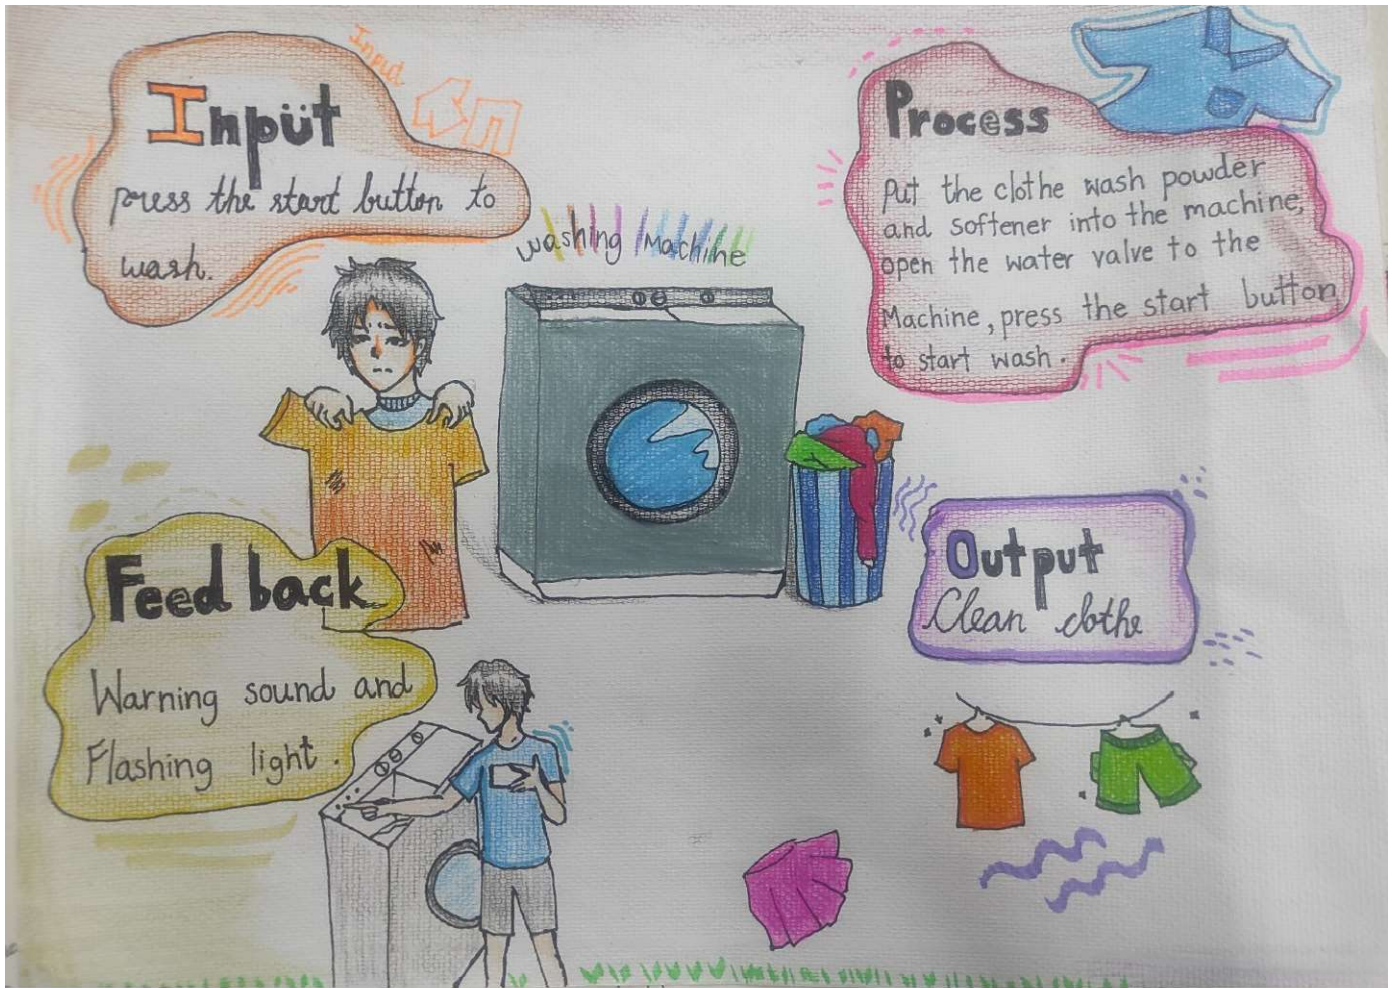 Input
Input
press the start button to
wash.
Process
Put the clothe wash powder
and softener into the machine,
open the water valve to the
Machine, press the start button
to start wash.
washing Machine
Feed back
Warning sound and
Flashing light.
Output
Clean clothe